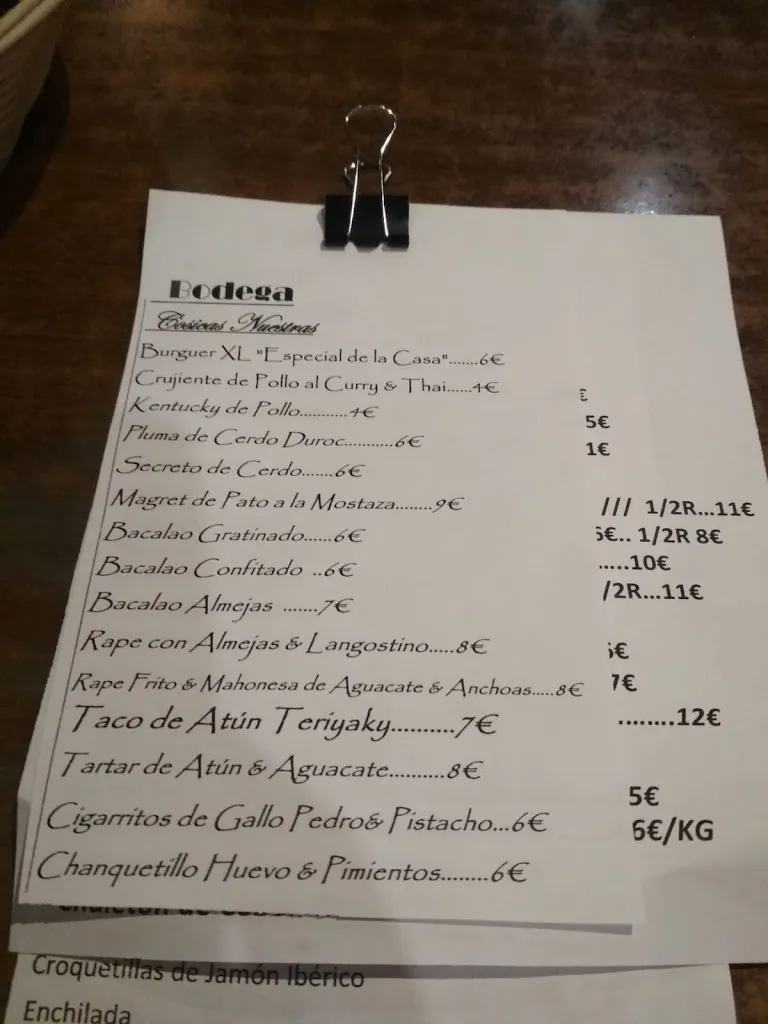 Bodega
Cosicas Nuestras
Burguer XL "Especial de la Casa".......6€
Crujiente de Pollo al Curry & Thai......4€
Kentucky de Pollo...........4€
Pluma de Cerdo Duroc...........6€
Secreto de Cerdo.......6€
Magret de Pato a la Mostaza........9€
Bacalao Gratinado......6€
Bacalao Confitado ..6€
Bacalao Almejas .......7€
Rape con Almejas & Langostino.....8€
Rape Frito & Mahonesa de Aguacate & Anchoas.....8€
Taco de Atún Teriyaky..........7€
Tartar de Atún & Aguacate..........8€
Cigarritos de Gallo Pedro& Pistacho...6€
Chanquetillo Huevo & Pimientos........6€
€
5€
1€
/// 1/2R...11€
5€.. 1/2R 8€
.....10€
/2R...11€
€
7€
........12€
5€
6€/KG
Croquetillas de Jamón Ibérico
Enchilada